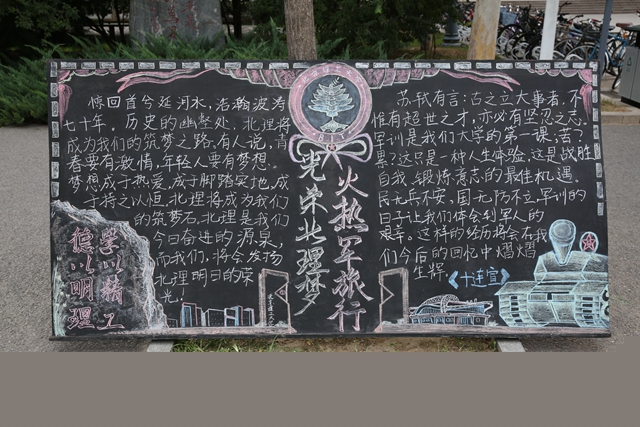 惊回首兮延河水，浩瀚波涛
七十年。历史的幽壑处，北理将
成为我们的筑梦之路。有人说，青
春要有激情，年轻人要有梦想。
梦想成于热爱，成于脚踏实地，成
于持之以恒。北理将成为我们
的筑梦石，北理是我们
今日奋进的源泉，
而我们，将会发扬
北理明日的荣
光！
德以明理
学以精工
光荣北理梦
火热军旅行
苏轼有言：古之立大事者，不
惟有超世之才，亦必有坚忍之志。
军训是我们大学的第一课；苦？
累？这只是一种人生体验，这是战胜
自我，锻炼意志的最佳机遇。
民无兵不安，国无防不立。军训的
日子让我们体会到军人的
艰辛。这样的经历将会在我
们今后的回忆中熠熠
生辉。
《十连宣》